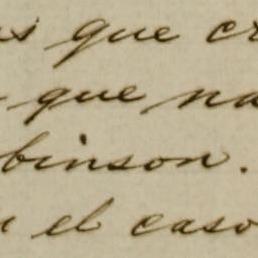 que cr
que na
binson.
el caso